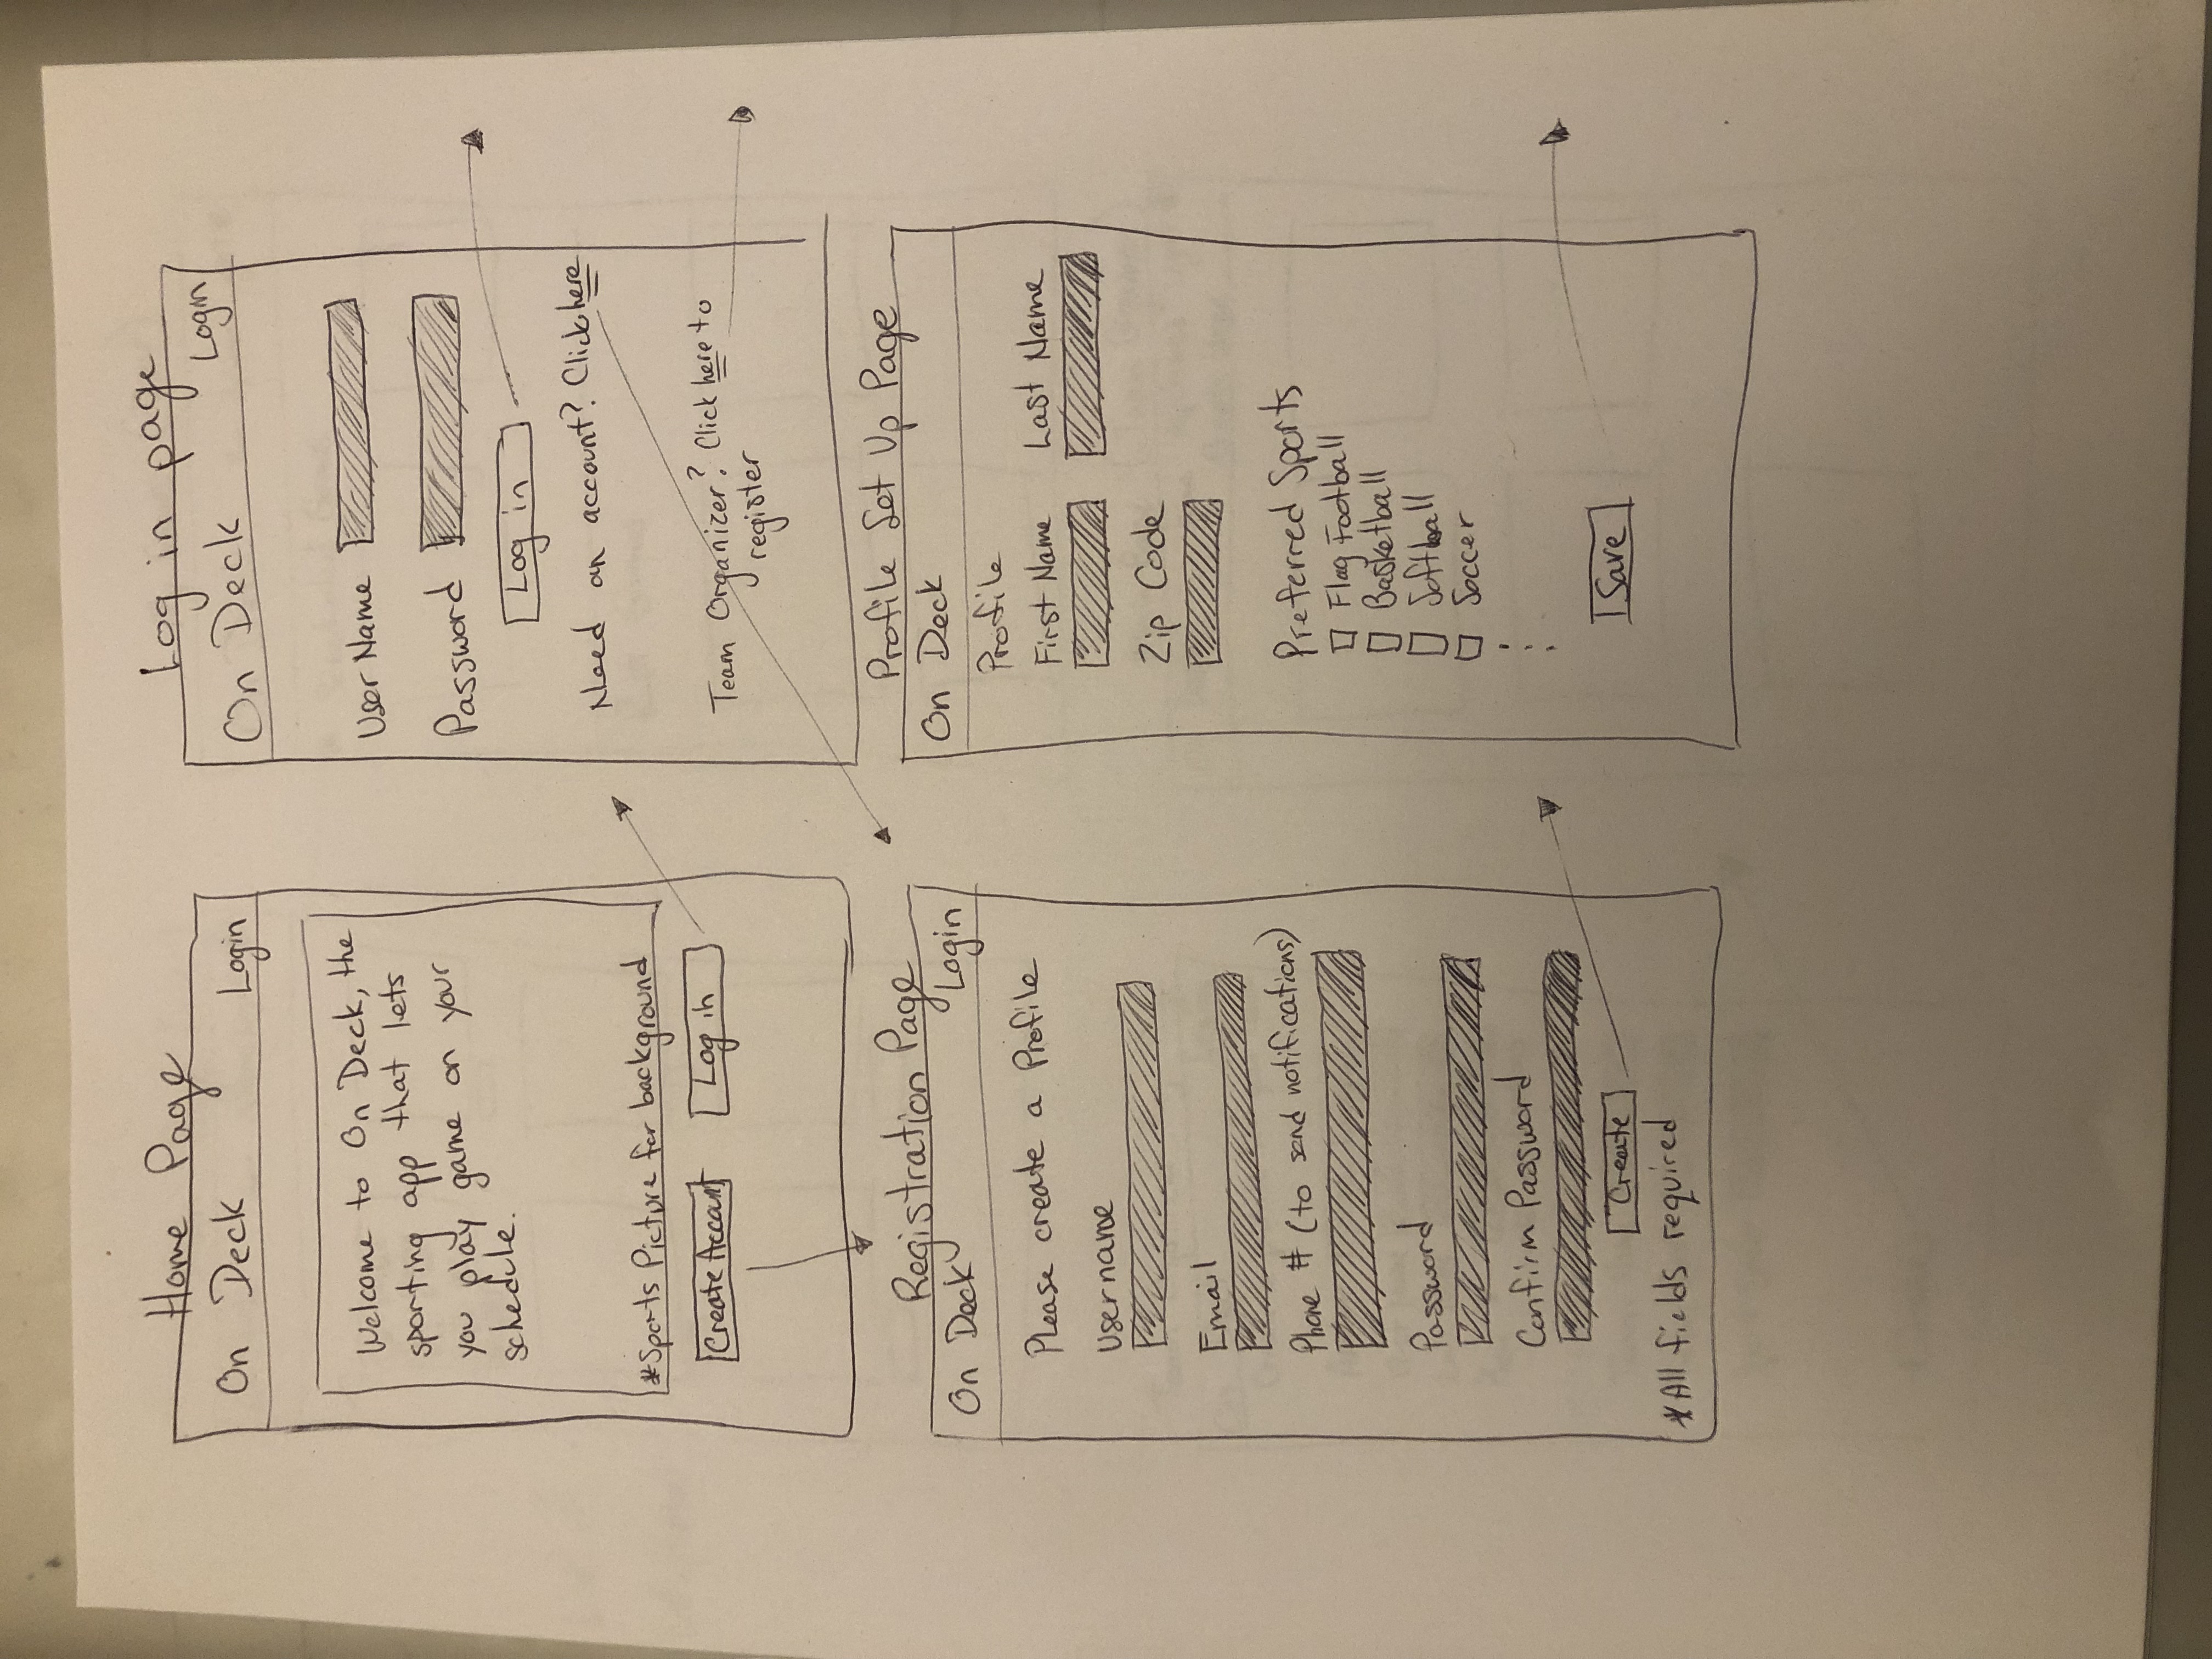 Home Page
On Deck
Login
Welcome to On Deck, the
sporting app that lets
you play game on your
schedule.
*Sports Picture for background
Create Account
Log in
Log in page
On Deck
Login
User Name
Password
Log in
Need an account? Click here
Team Organizer? Click here to
register
Registration Page
On Deck
Login
Please create a Profile
Username
Email
Phone # (to send notifications)
Password
Confirm Password
Create
*All fields required
Profile Set Up Page
On Deck
Profile
First Name
Last Name
Zip Code
Preferred Sports
Flag Football
Basketball
Softball
Soccer
Save